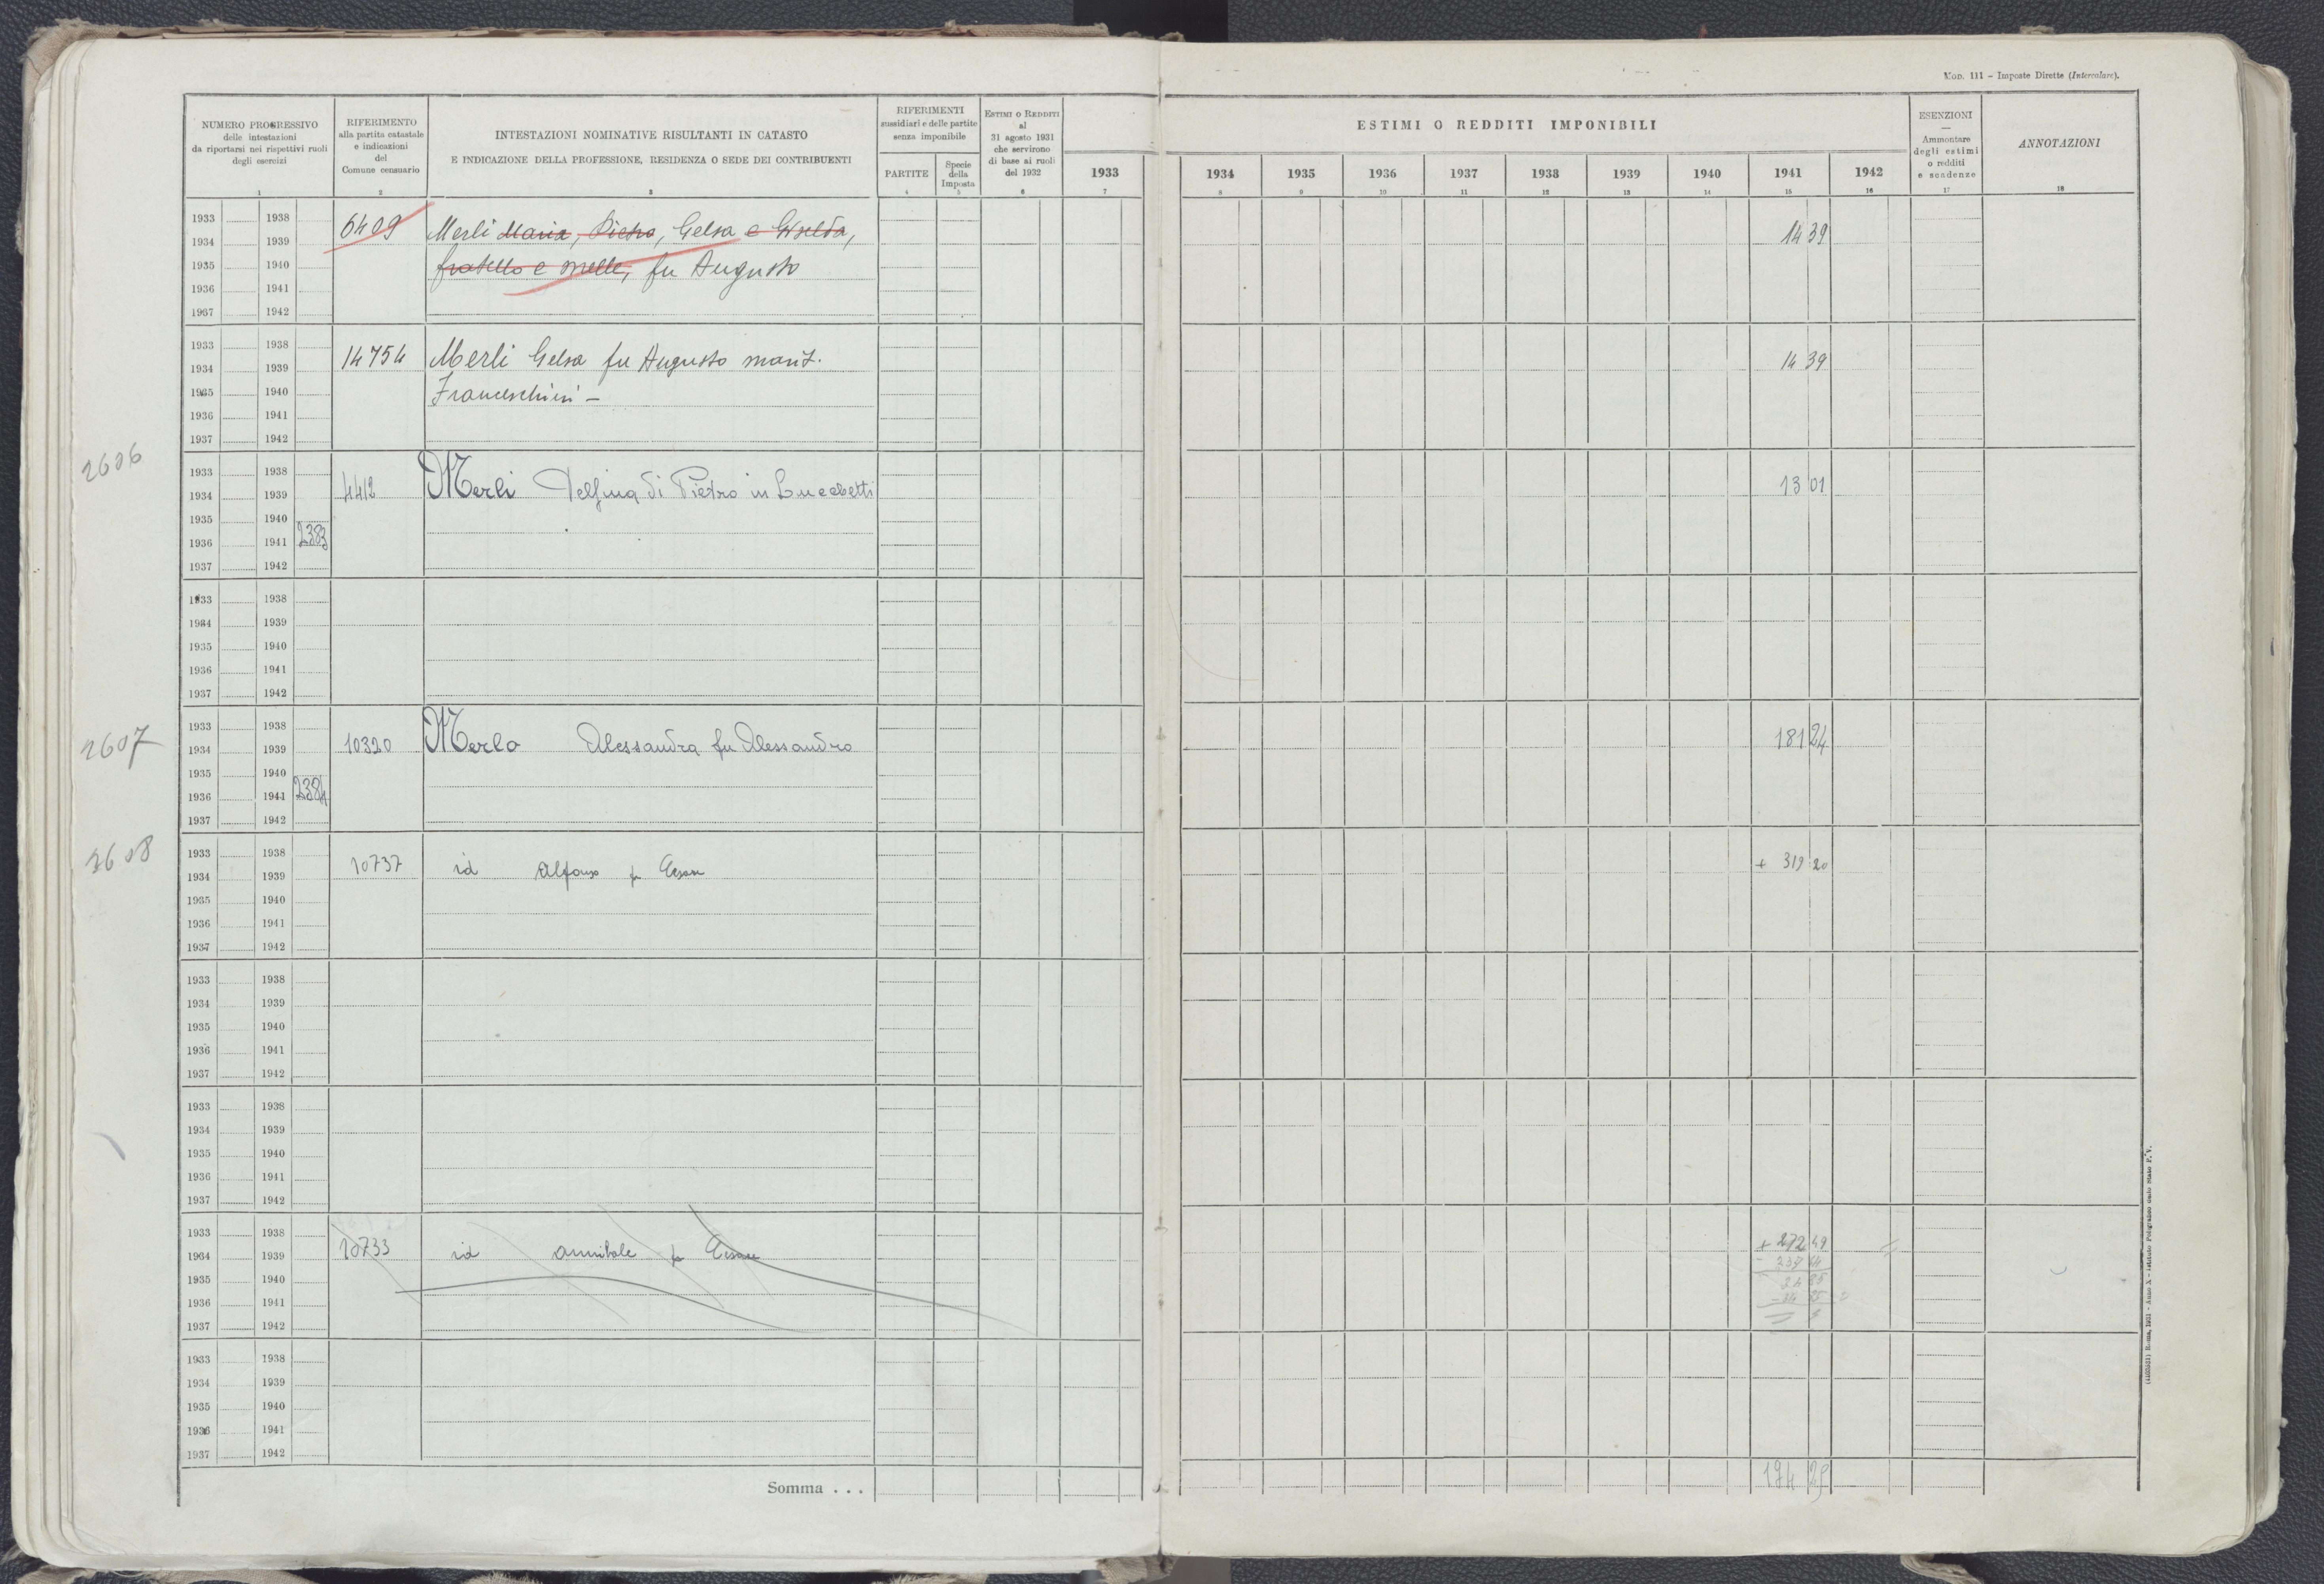 Mod. 111 – Imposte Dirette (Intercalare).
NUMERO PROGRESSIVO
delle intestazioni
da riportarsi nei rispettivi ruoli
degli esercizi
1
RIFERIMENTO
alla partita catastale
e indicazioni
del
Comune censuario
2
INTESTAZIONI NOMINATIVE RISULTANTI IN CATASTO
E INDICAZIONE DELLA PROFESSIONE, RESIDENZA O SEDE DEI CONTRIBUENTI
3
RIFERIMENTI
sussidiari e delle partite
senza imponibile
PARTITE
4
Specie
della
Imposta
5
ESTIMI O REDDITI
al
31 agosto 1931
che servirono
di base ai ruoli
del 1932
6
ESTIMI O REDDITI IMPONIBILI
1933
7
1934
8
1935
9
1936
10
1937
11
1938
12
1939
13
1940
14
1941
15
1942
16
ESENZIONI
—
Ammontare
degli estimi
o redditi
e scadenze
17
ANNOTAZIONI
18
1933 1938 6409 Merli Maria, Pietro, Gelsa e Giselda, 14 39
1934 1939
1935 1940 fratello e sorelle, fu Augusto
1936 1941
1937 1942
1933 1938
1934 1939 14754 Merli Gelsa fu Augusto marit. 14 39
1935 1940 Franceschini –
1936 1941
1937 1942
2606
1933 1938
1934 1939 4412 Merli Delfina di Pietro in Lucchetti 13 01
1935 1940
1936 1941 2383
1937 1942
1933 1938
1934 1939
1935 1940
1936 1941
1937 1942
2607
1933 1938
1934 1939 10320 Merlo Alessandra fu Alessandro 181 24
1935 1940
1936 1941 2384
1937 1942
2608
1933 1938
1934 1939 10737 id Alfonso fu Cesare + 319 20
1935 1940
1936 1941
1937 1942
1933 1938
1934 1939
1935 1940
1936 1941
1937 1942
1933 1938
1934 1939
1935 1940
1936 1941
1937 1942
1933 1938
1934 1939 10733 id Annibale fu Cesare + 272 49
1935 1940
1936 1941
1937 1942
1933 1938
1934 1939
1935 1940
1936 1941
1937 1942
Somma . . .
Roma, 1931 - Anno X - Istituto Poligrafico dello Stato P. V.